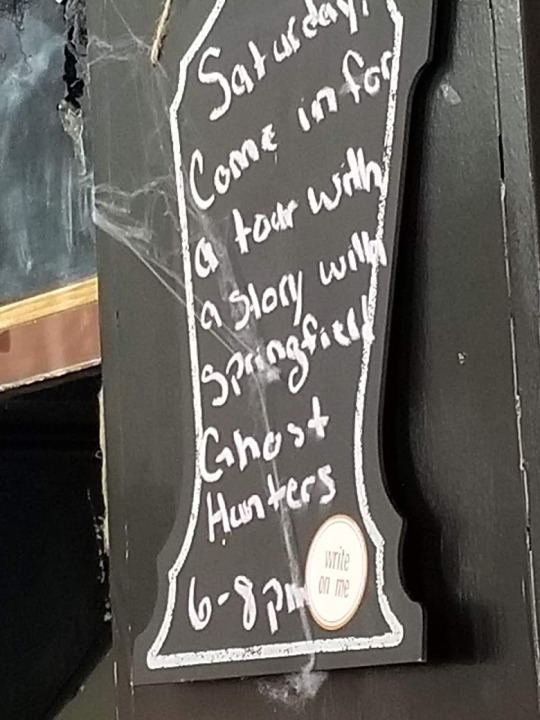 Saturday!
Come in for
a tour with
a story with
Springfield
Ghost
Hunters
6-8pm
write
on me